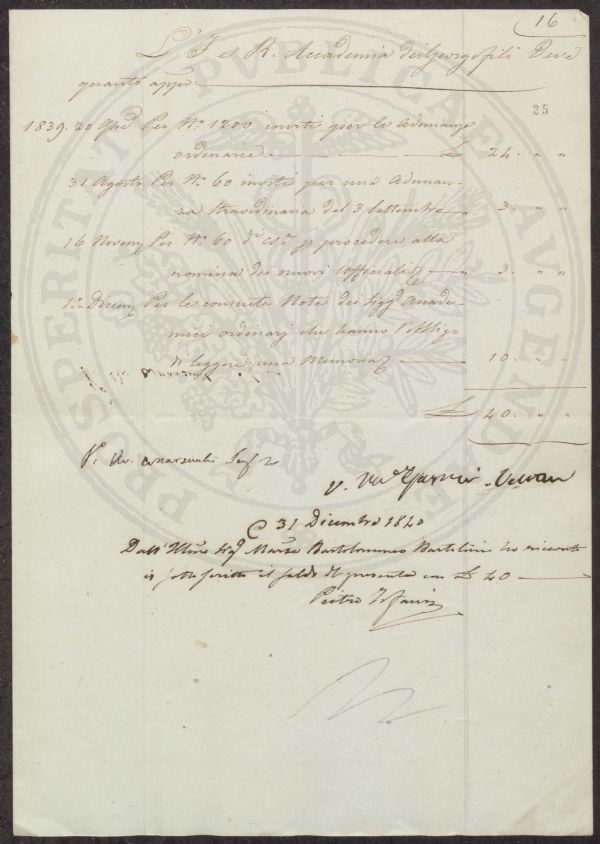 16
L'I e R. Accademia dei Georgofili Deve
quanto app.e
25
1839. 20 Per N.o 1200 inviti per le Adunanze
ordinarie £ 24. " "
31 Agosto Per N.o 60 inviti per una Adunan-
za Straordinaria del 3 Settembre 3. " "
16 Novem Per N.o 60 d.i p procedere alla
nomina dei nuovi Uffiziali 3. " "
Dicem Per le consuete Note dei Sigg.i Accade-
mici ordinarj che hanno l'obbligo
di leggere una Memoria 10. " "
£ 40. " "
V.
31 Dicembre 1840
Dall' Illmo Sig.e Marse Bartolommeo Bartolini ho ricevuto
io sottoscritto il saldo del presente in £ 40
Pietro
PROSPERITATI PVBLICAE AVGENDAE